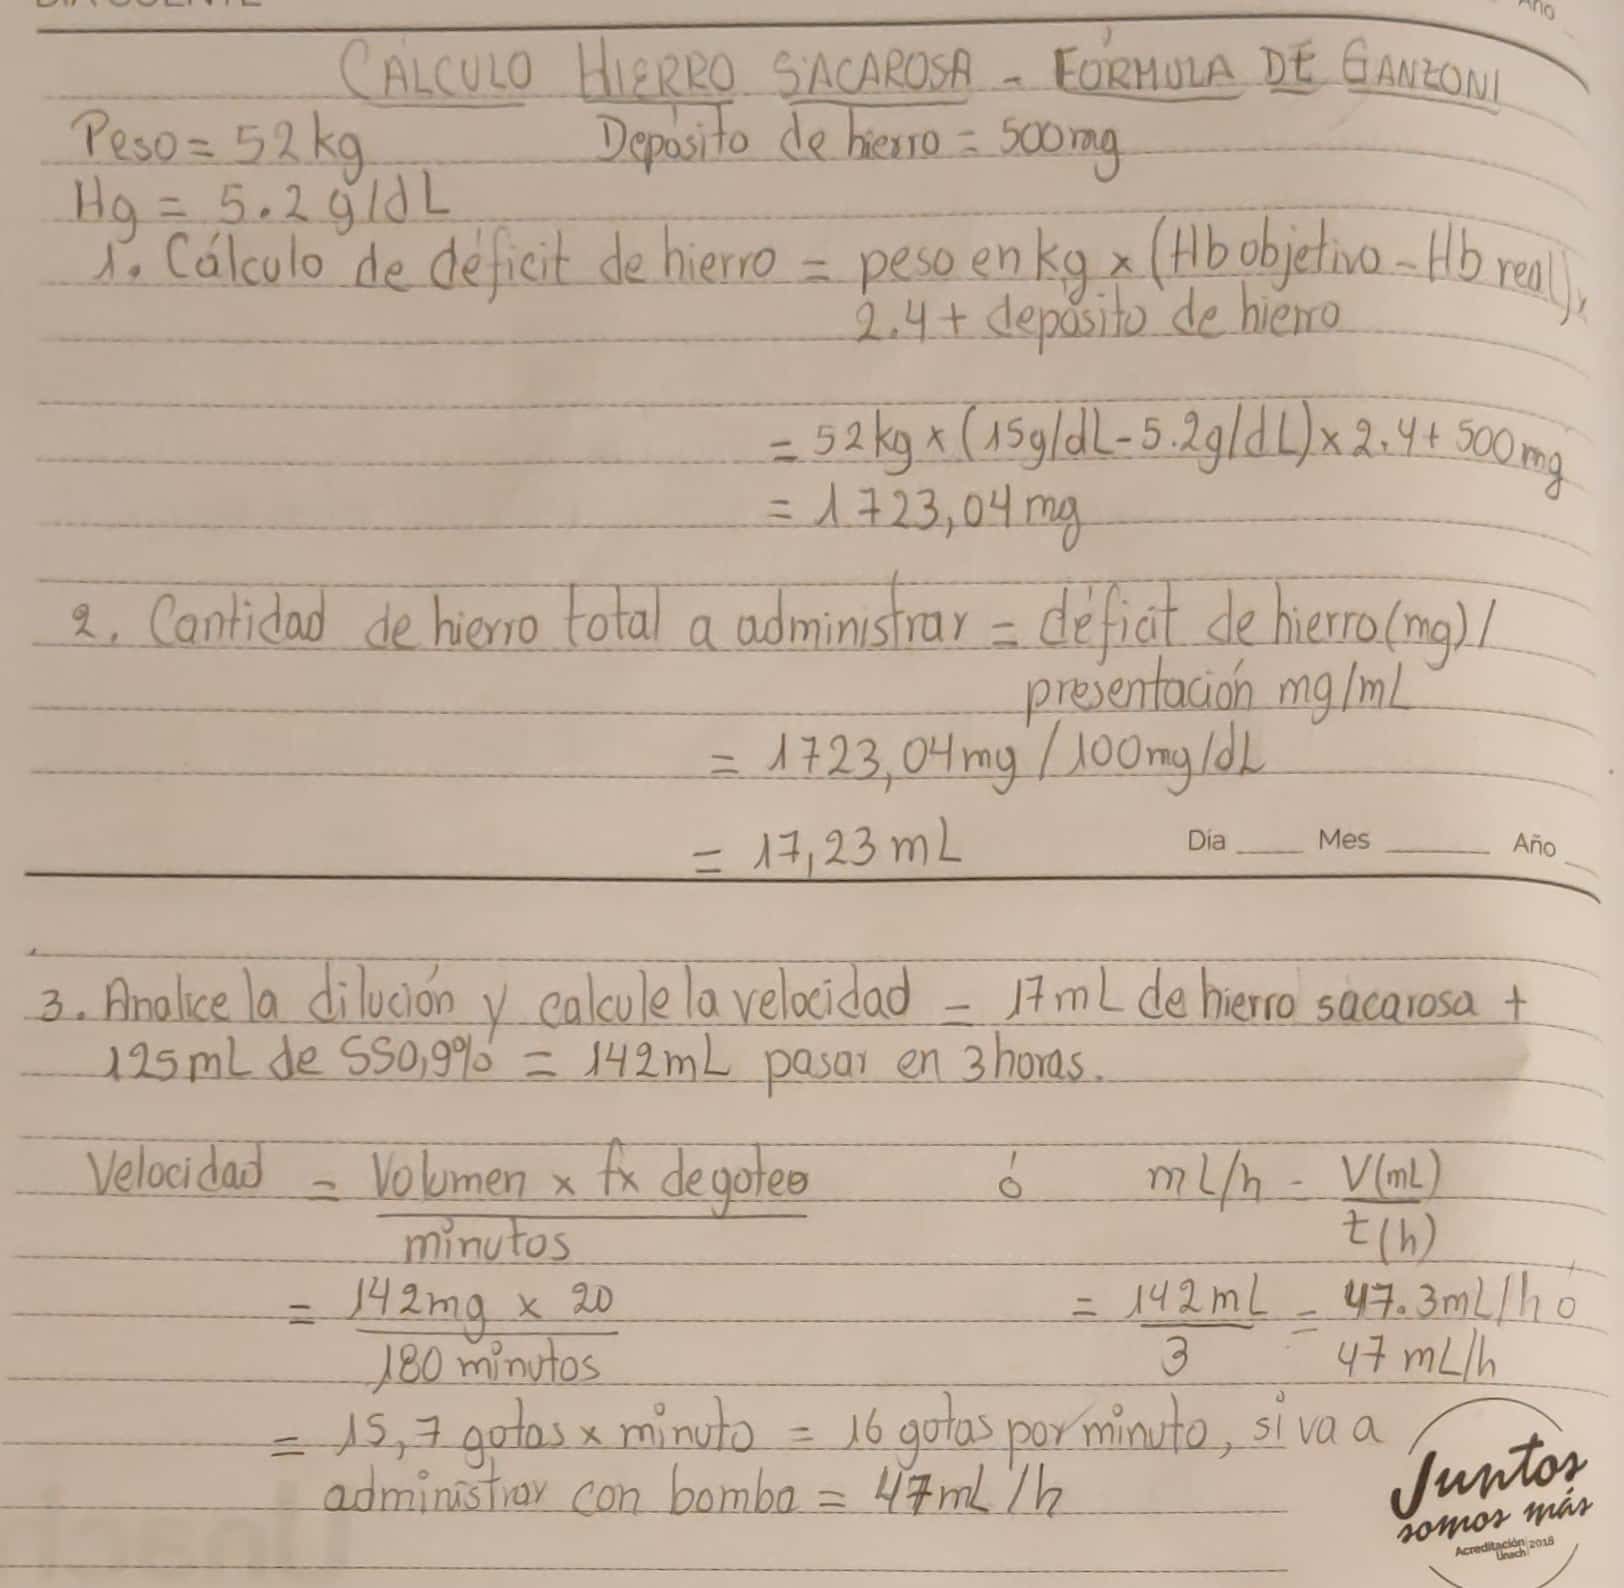 Año
CÁLCULO HIERRO SACAROSA - FÓRMULA DE GANZONI
Peso = 52 kg Depósito de hierro = 500mg
Hg = 5.2 g/dL
1. Cálculo de déficit de hierro = peso en kg x (Hb objetivo - Hb real) x
2.4 + depósito de hierro
= 52 kg x (15g/dL - 5.2g/dL) x 2.4 + 500 mg
= 1723,04 mg
2. Cantidad de hierro total a administrar = déficit de hierro (mg) /
presentación mg/mL
= 1723,04 mg / 100mg/dL
= 17,23 mL
Día Mes Año
3. Analice la dilución y calcule la velocidad = 17 mL de hierro sacarosa +
125 mL de SS0,9% = 142 mL pasar en 3 horas.
Velocidad = Volumen x fx de goteo ó mL/h = V(mL)
minutos t(h)
= 142 mg x 20 = 142 mL = 47.3 mL/h ó
180 minutos 3 47 mL/h
= 15,7 gotas x minuto = 16 gotas por minuto, si va a
administrar con bomba = 47 mL/h
Juntos
somos más
Acreditación 2018
Unach